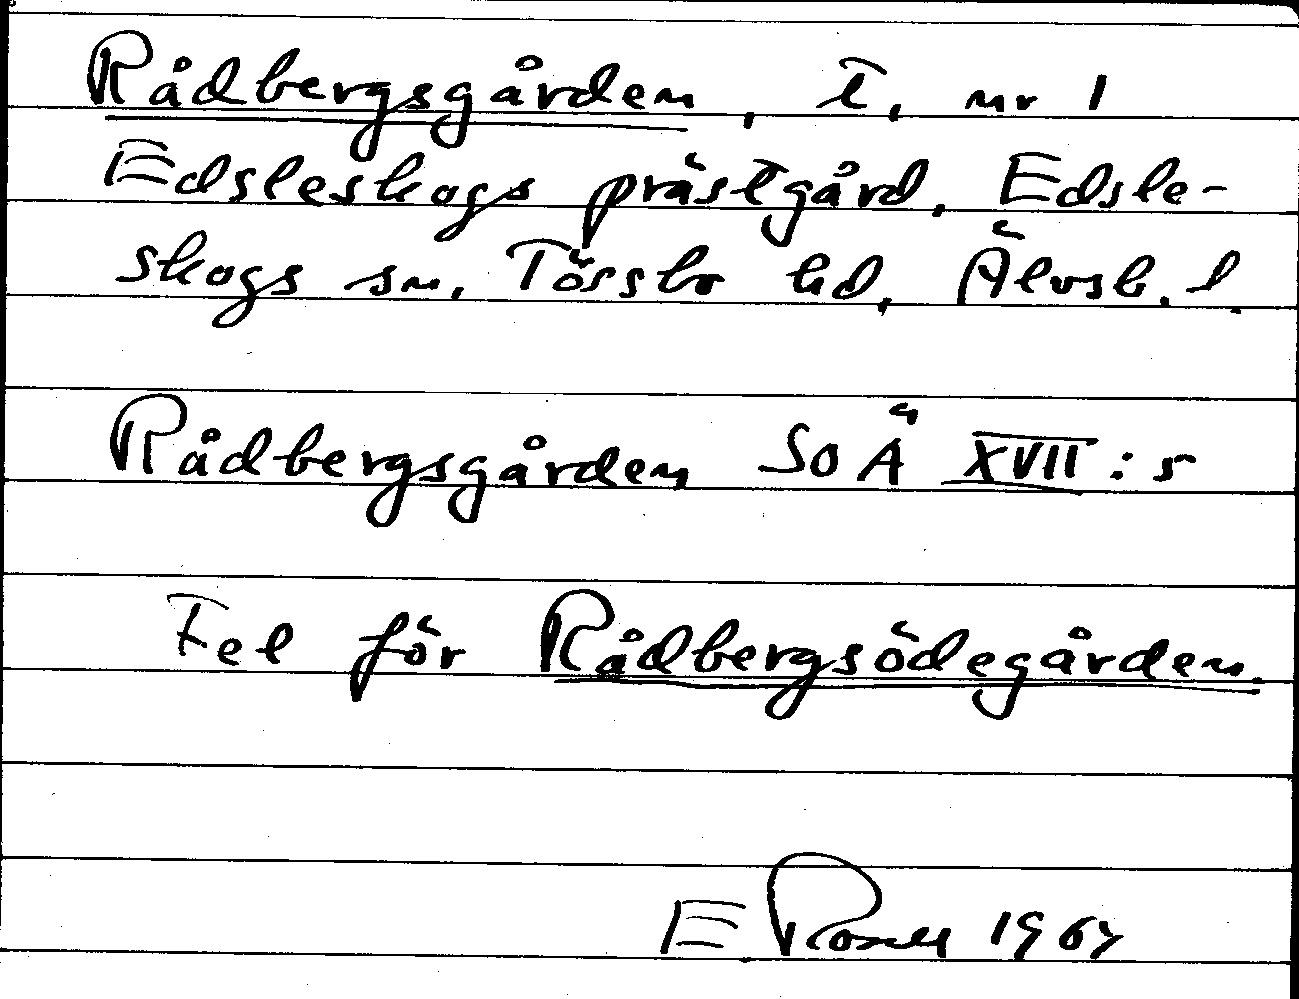 Rådbergsgården, t, nr 1
Edsleskogs prästgård, Edsle-
skogs sn, Tössbo hd, Älvsb. l.
Rådbergsgården SOÄ XVII : 5
Fel för Rådbergsödegården.
E Rosell 1964